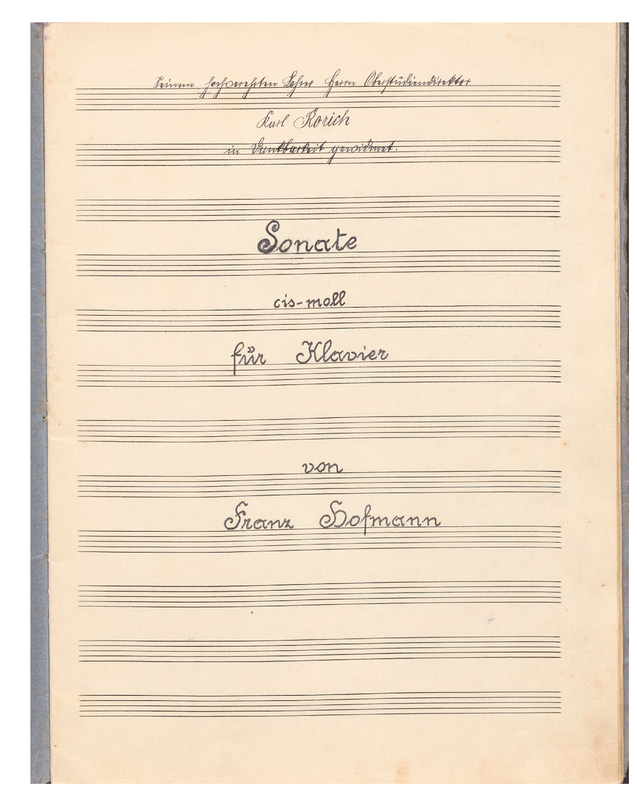 Seinem hochverehrten Lehrer Herrn Oberstudiendirektor
Karl Rorich
in Dankbarkeit gewidmet.
Sonate
cis-moll
für Klavier
von
Franz Hofmann